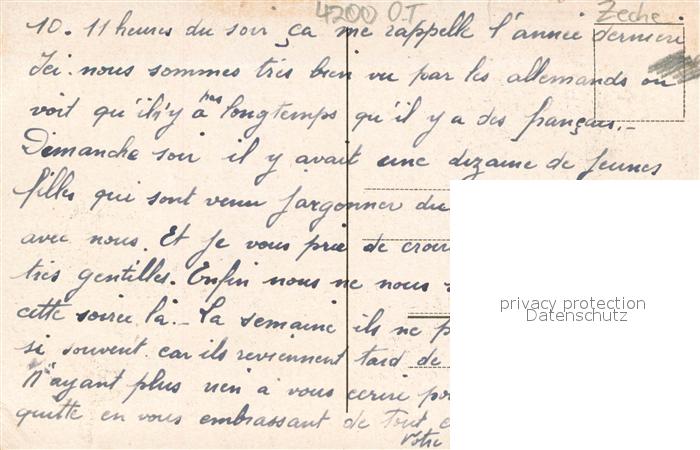 4200 O.T Zeche
10.11 heures du soir ça me rappelle l'année dernière
Ici nous sommes très bien vu par les allemands on
voit qu'il n'y a pas longtemps qu'il y a des français.-
Dimanche soir il y avait une dizaine de jeunes
filles qui sont venu jargonner du
avec nous. Et je vous prie de croire
très gentilles. Enfin nous ne nous
cette soirée là.- La semaine ils ne
si souvent car ils reviennent tard de
N'ayant plus rien à vous ecrire
quitte en vous embrassant de tout
Votre
privacy protection
Datenschutz